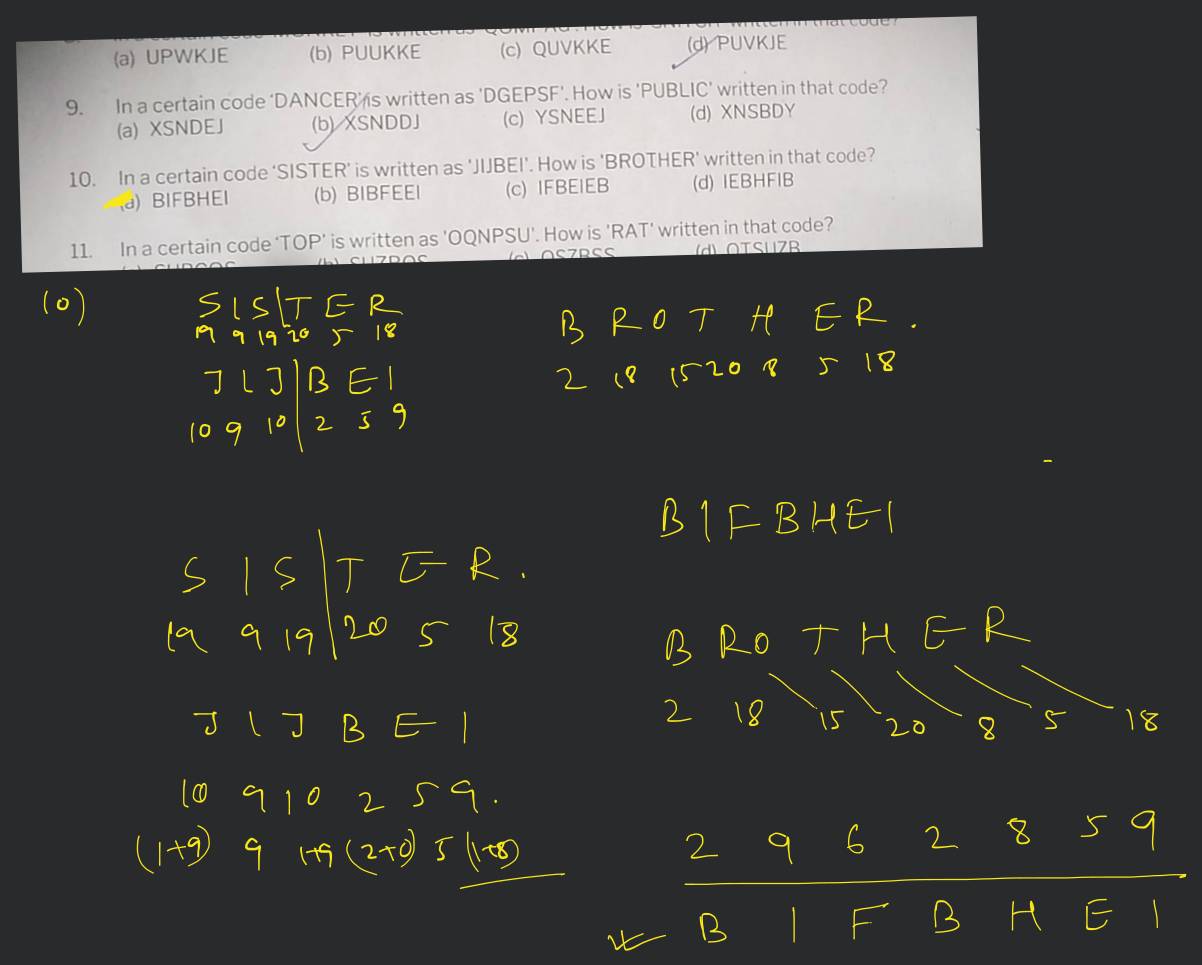 (a) UPWKJE (b) PUUKKE (c) QUVKKE (d) PUVKJE
9. In a certain code 'DANCER' is written as 'DGEPSF'. How is 'PUBLIC' written in that code?
(a) XSNDEJ (b) XSNDDJ (c) YSNEEJ (d) XNSBDY
10. In a certain code 'SISTER' is written as 'JIJBEI'. How is 'BROTHER' written in that code?
(a) BIFBHEI (b) BIBFEEI (c) IFBEIEB (d) IEBHFIB
11. In a certain code 'TOP' is written as 'OQNPSU'. How is 'RAT' written in that code?
(10) S I S | T E R B R O T H E R .
19 9 19 20 5 18 2 18 15 20 8 5 18
J I J | B E I
10 9 10 2 5 9
B I F B H E I
S I S | T E R .
19 9 19 20 5 18
B R O T H E R
2 18 15 20 8 5 18
J I J B E I
10 9 10 2 5 9 .
(1+9) 9 1+9 (2+0) 5 (1+8)
2 9 6 2 8 5 9
B I F B H E I